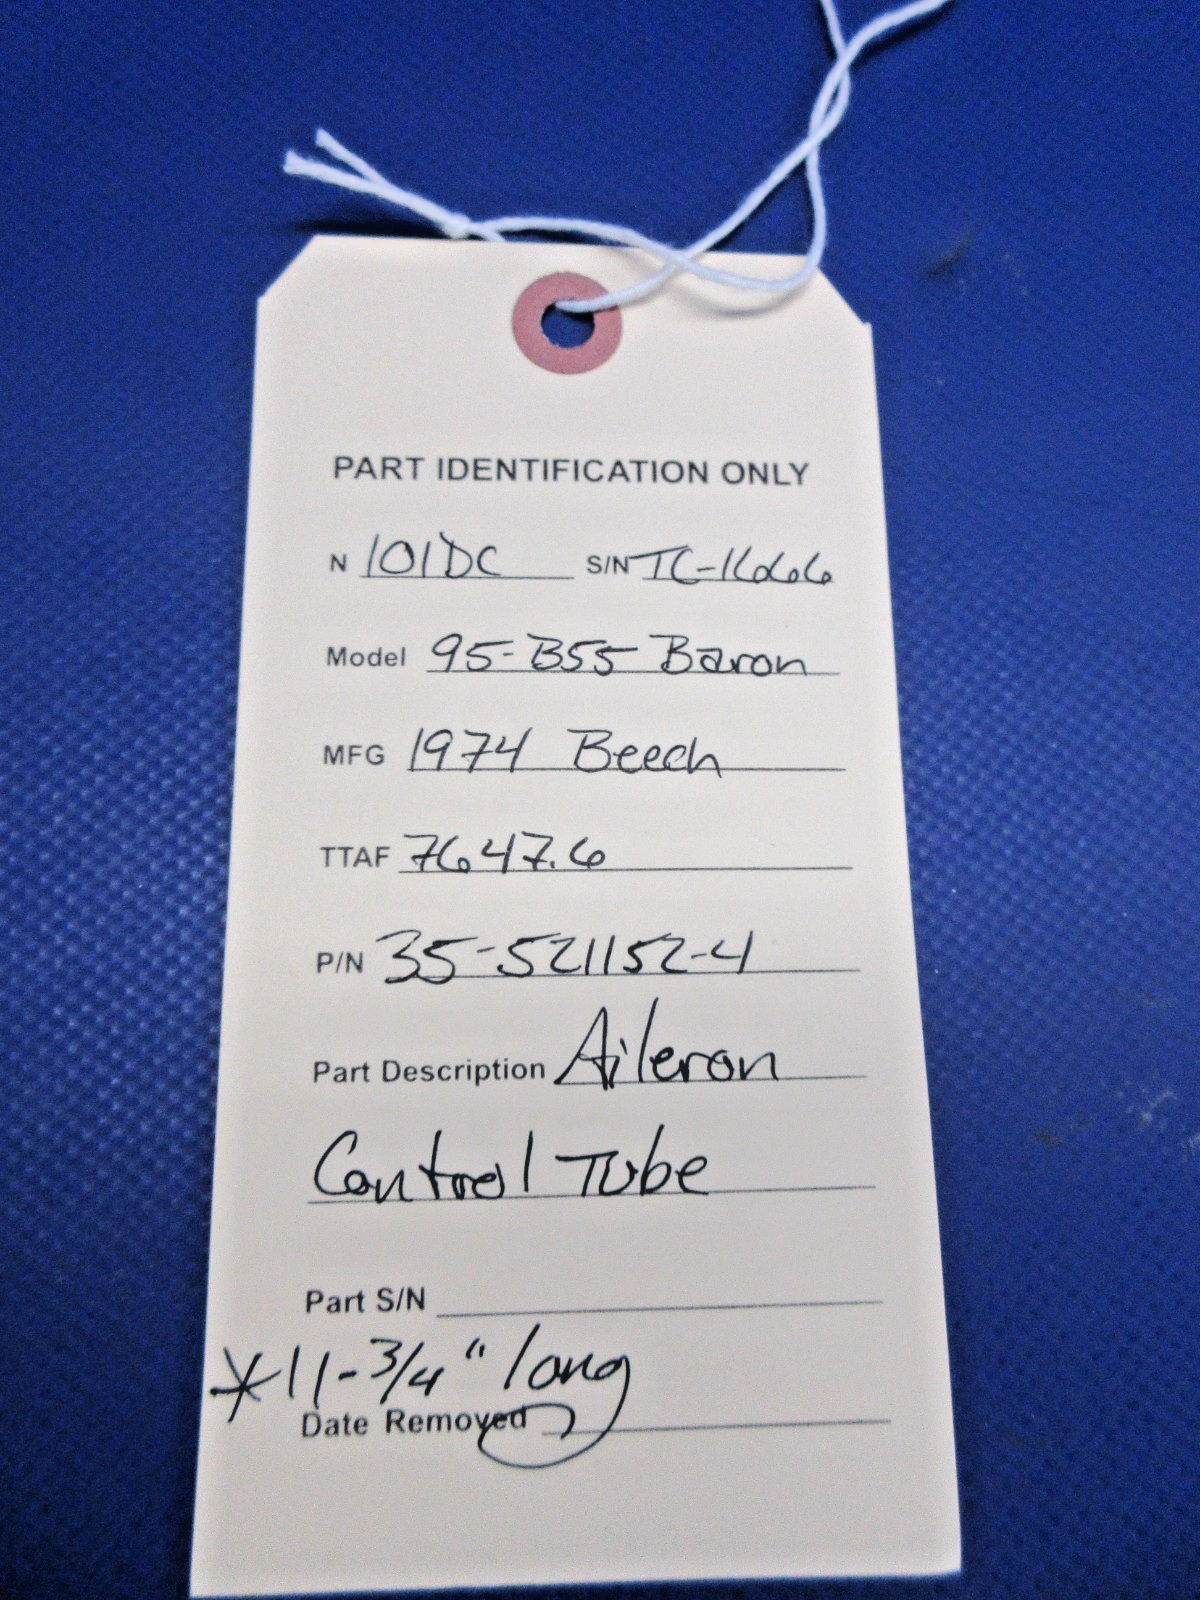 PART IDENTIFICATION ONLY
N 101DC S/N TC-1666
Model 95-B55 Baron
MFG 1974 Beech
TTAF 7647.6
P/N 35-521152-4
Part Description Aileron
Control Tube
Part S/N
*11-3/4" long
Date Removed